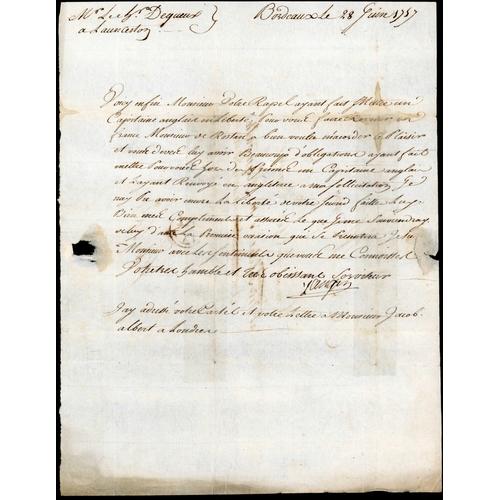 Mr. Le Chr. Dequeux Bordeaux Le 28 Juin 1757
a Launceston
Voicy enfin Monsieur Votre Rapel ayant fait Mettre un
Capitaine anglais en Liberté Pour vous faire Revenir en
france Monsieur de Rostan a bien voulu m'acorder ce Plaisir
et vous devez Luy avoir Beaucoup d'obligations ayant fait
mettre Pour vous hors de Prison un Capitaine anglais
et L'ayant Renvoyé en angleterre a ma sollicitation, Je
nay Pu avoir encore La Liberté de votre Second faites Luy
Bien mes Compliments et assurez Le que Je me Souviendray
de Luy dans La Premiere ocasion que Se Presentera Je Suis
Monsieur avec Les Sentiments que vous me Connoissez
Votre tres humble et tres obeissant Serviteur
J'ay adressé votre Cartel et votre Lettre a Monsieur Jacob
albert a Londres